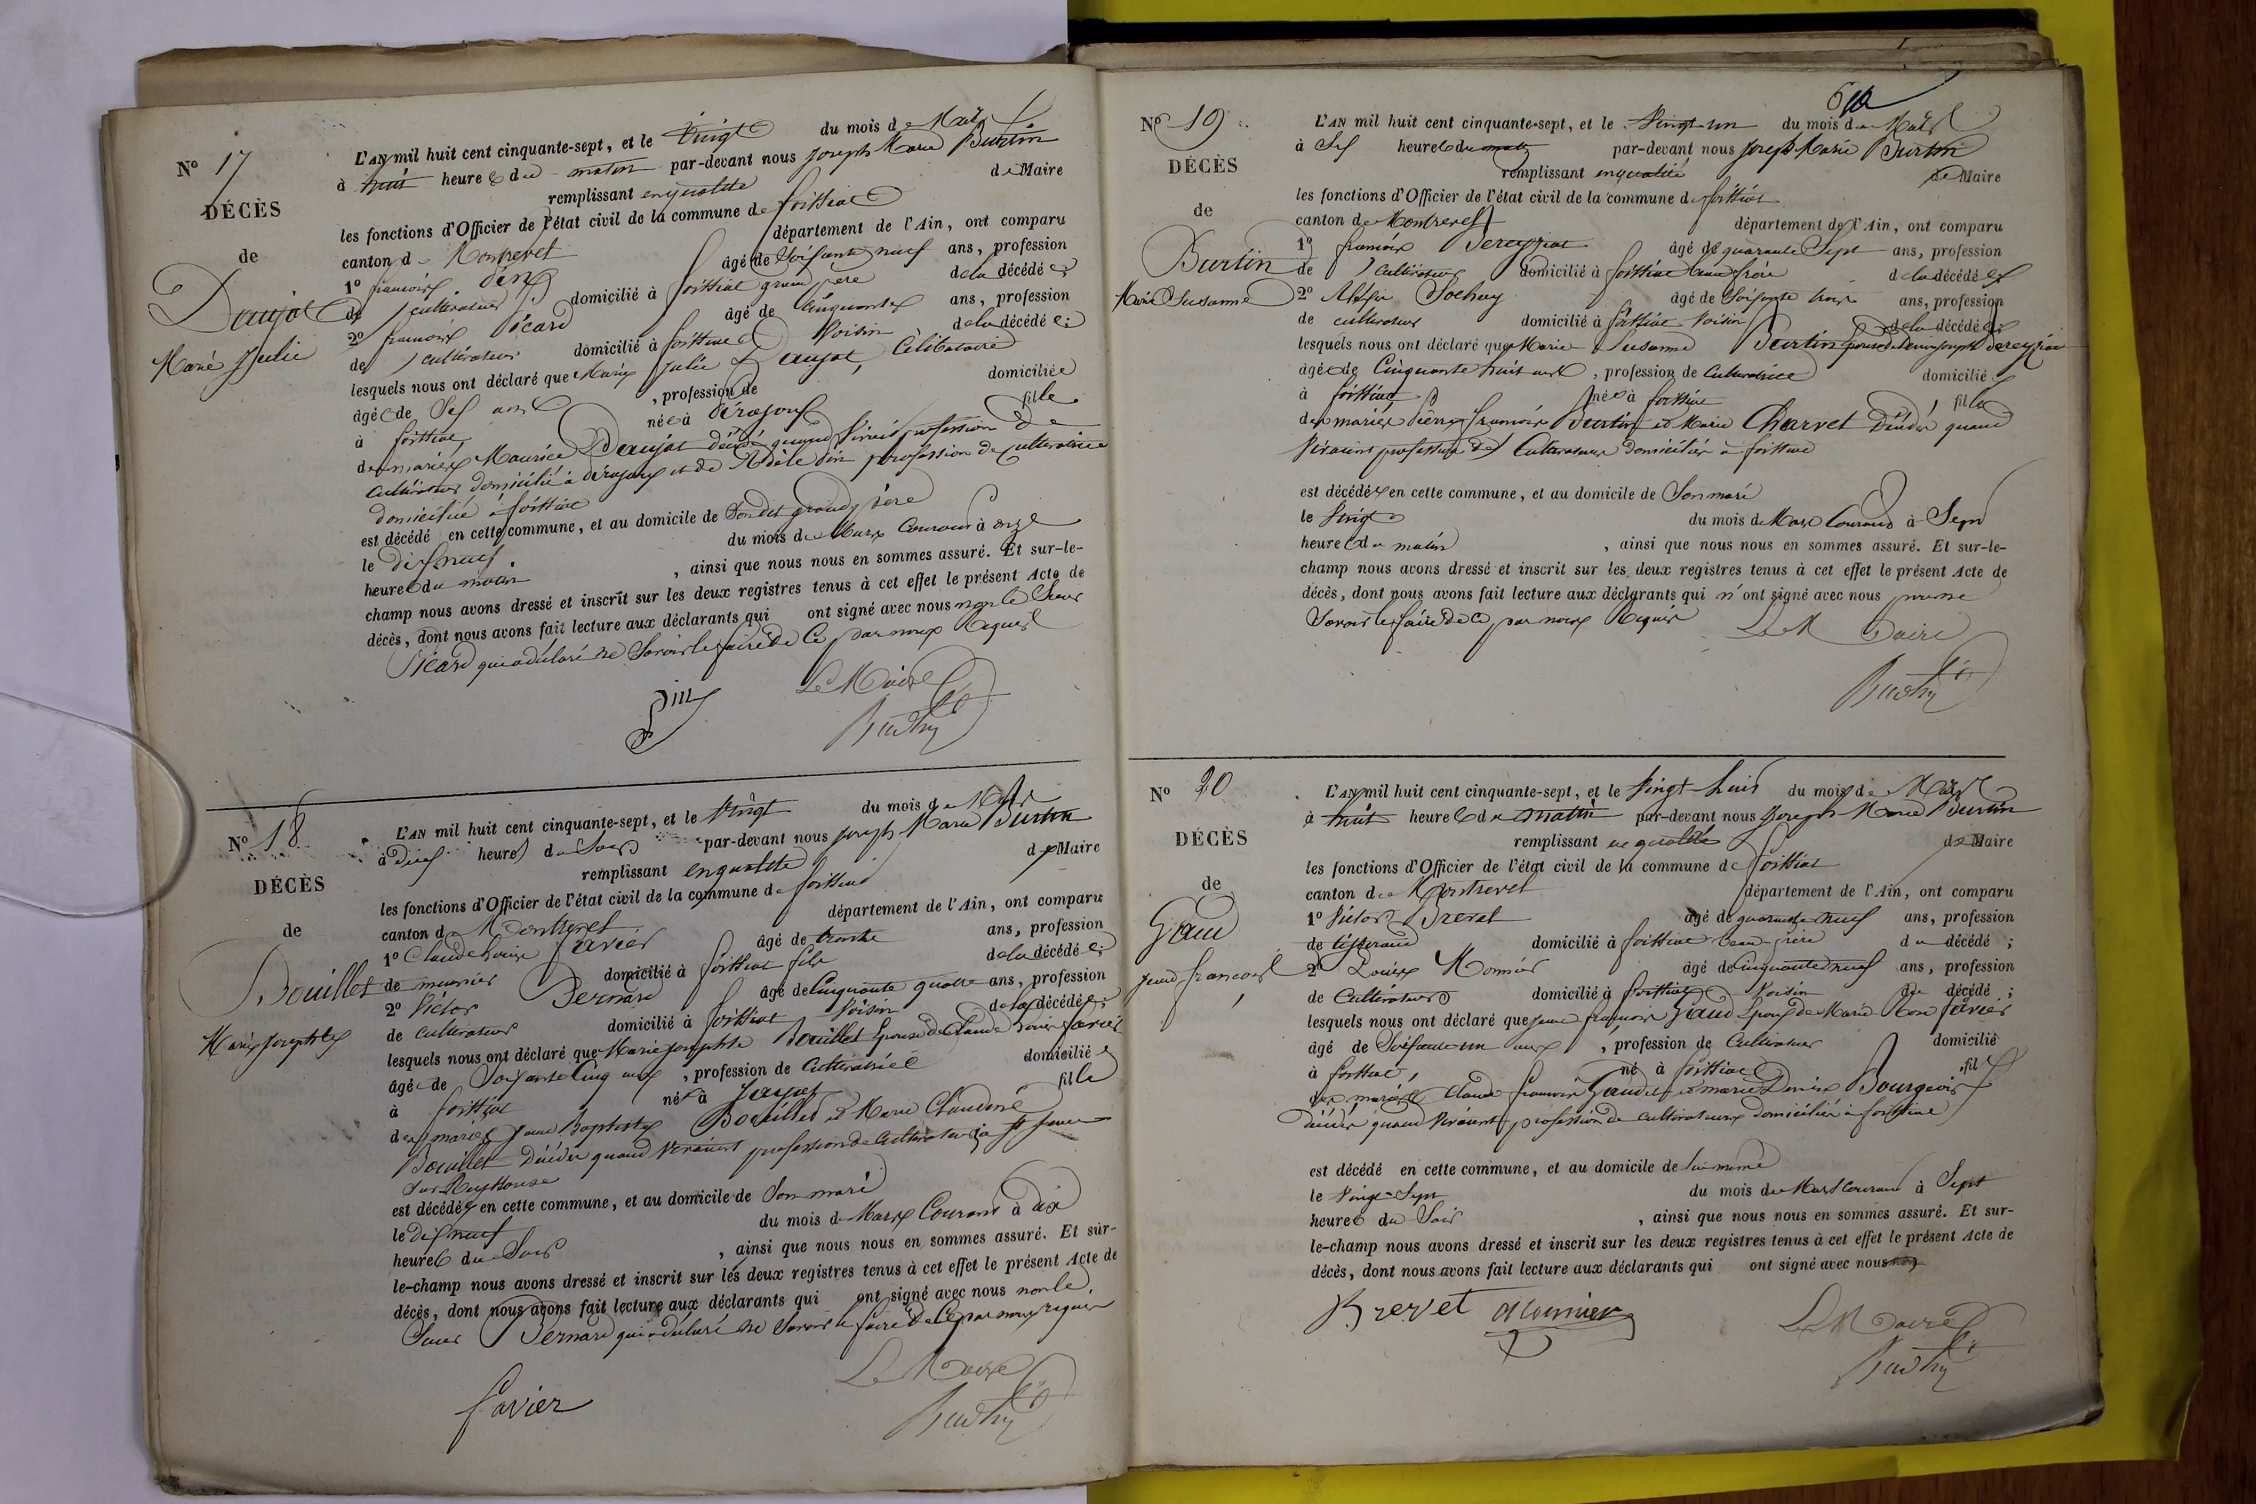 N° 17
DÉCÈS
de
Daujat
Marie Julie
L'AN mil huit cent cinquante-sept, et le vingt du mois de Mars
à huit heures du matin par-devant nous Joseph Marie Burtin
remplissant en qualité de Maire
les fonctions d'Officier de l'état civil de la commune de foissiat
canton de Montrevel département de l'Ain, ont comparu
1° françois din âgé de soixante neuf ans, profession
de cultivateur domicilié à foissiat grand père de la décédée
2° françois Sicard âgé de cinquante ans, profession
de cultivateur domicilié à foissiat voisin de la décédée;
lesquels nous ont déclaré que Marie Julie Daujat, Célibataire
âgée de ans, profession de domiciliée
à foissiat née à fille
des mariés Maurice Daujat décédé quand vivait profession de
cultivateur domicilié à et de Adèle din profession de cultivatrice
domiciliée à foissiat
est décédé en cette commune, et au domicile de Son dit grand père
le dix neuf du mois de Mars Courant à onze
heures du matin, ainsi que nous nous en sommes assuré. Et sur-le-
champ nous avons dressé et inscrit sur les deux registres tenus à cet effet le présent Acte de
décès, dont nous avons fait lecture aux déclarants qui ont signé avec nous non le Sieur
Sicard qui a déclaré ne Savoir le faire de Ce par nous Requis
din Le Maire
Burtin
N° 18
DÉCÈS
de
Bouillet
Marie Josephte
L'AN mil huit cent cinquante-sept, et le vingt du mois de Mars
à heures du Soir par-devant nous Joseph Marie Burtin
remplissant en qualité de Maire
les fonctions d'Officier de l'état civil de la commune de foissiat
canton de Montrevel département de l'Ain, ont comparu
1° Claude Louis favier âgé de trente ans, profession
de meunier domicilié à foissiat fils de la décédée;
2° Victor Bernard âgé de Cinquante quatre ans, profession
de cultivateur domicilié à foissiat voisin de la décédée;
lesquels nous ont déclaré que Marie Josephte Bouillet Epouse de Claude favier
âgée de Soixante Cinq ans, profession de Cultivatrice domiciliée
à foissiat née à Jayat fille
des mariés Jean Baptiste Bouillet et Marie Claudine
Bouillet Décédés quand vivaient profession de Cultivateurs à St Jean
sur Reyssouse
est décédée en cette commune, et au domicile de Son mari
le dix neuf du mois de Mars Courant à dix
heures du Soir, ainsi que nous nous en sommes assuré. Et sur-
le-champ nous avons dressé et inscrit sur les deux registres tenus à cet effet le présent Acte de
décès, dont nous avons fait lecture aux déclarants qui ont signé avec nous non le
Sieur Bernard qui a déclaré ne Savoir le faire de Ce par nous requis
favier Le Maire
Burtin
N° 19
DÉCÈS
de
Burtin
Marie Susanne
L'AN mil huit cent cinquante-sept, et le Vingt-un du mois de Mars
à Sept heures du matin par-devant nous Joseph Marie Burtin
remplissant en qualité de Maire
les fonctions d'Officier de l'état civil de la commune de foissiat
canton de Montrevel département de l'Ain, ont comparu
1° françois Dereyriat âgé de quarante Sept ans, profession
de cultivateur domicilié à foissiat beau frère de la décédée
2° Sochay âgé de Soixante trois ans, profession
de cultivateur domicilié à foissiat voisin de la décédée;
lesquels nous ont déclaré que Marie Susanne Burtin Epouse de Joseph Dereyriat
âgée de Cinquante huit ans, profession de Cultivatrice domiciliée
à foissiat née à foissiat, fille
des mariés Pierre François Burtin et Marie Charvet Décédés quand
Vivaient profession de Cultivateurs domiciliés à foissiat
est décédée en cette commune, et au domicile de Son mari
le Vingt du mois de Mars Courant à Sept
heures du matin, ainsi que nous nous en sommes assuré. Et sur-le-
champ nous avons dressé et inscrit sur les deux registres tenus à cet effet le présent Acte de
décès, dont nous avons fait lecture aux déclarants qui n'ont signé avec nous pour ne
Savoir le faire de Ce par nous Requis Le Maire
Burtin
N° 20
DÉCÈS
de
Gaud
Jean François
L'AN mil huit cent cinquante-sept, et le Vingt huit du mois de Mars
à huit heures du matin par-devant nous Joseph Marie Burtin
remplissant en qualité de Maire
les fonctions d'Officier de l'état civil de la commune de foissiat
canton de Montrevel département de l'Ain, ont comparu
1° Victor Brevet âgé de quarante neuf ans, profession
de tisserand domicilié à foissiat beau-frère du décédé;
2° Louis Monnier âgé de Cinquante neuf ans, profession
de Cultivateur domicilié à foissiat voisin du décédé;
lesquels nous ont déclaré que Jean françois Gaud Epoux de Marie favier
âgé de Soixante un ans, profession de Cultivateur domicilié
à foissiat, né à foissiat, fils
des mariés Claude françois Gaud et marie Denise Bourgeois
Décédés quand Vivaient profession de cultivateurs domiciliés à foissiat
est décédé en cette commune, et au domicile de Lui même
le Vingt-Sept du mois de Mars Courant à Sept
heures du Soir, ainsi que nous nous en sommes assuré. Et sur-
le-champ nous avons dressé et inscrit sur les deux registres tenus à cet effet le présent Acte de
décès, dont nous avons fait lecture aux déclarants qui ont signé avec nous
Brevet Monnier Le Maire
Burtin